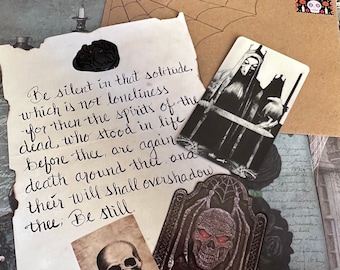 Be silent in that solitude,
which is not loneliness
for then the spirits of the
dead, who stood in life
before thee, are again
death around thee and
their will shall overshadow
thee: Be still